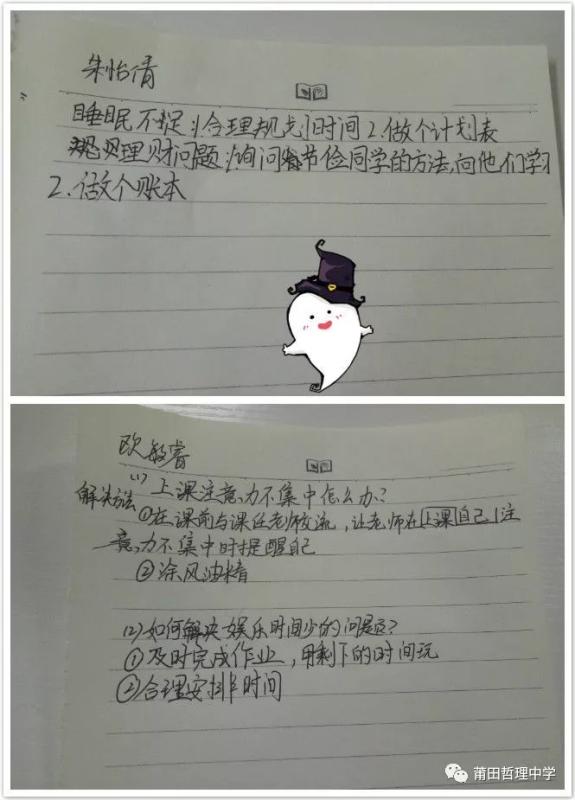 朱怡倩
睡眠不足:1.合理规划时间 2.做个计划表
理财问题:1.询问节俭同学的方法,向他们学习
2.做个账本
欧敏睿
(1)上课注意力不集中怎么办?
解决办法
①在课前与课任老师交流,让老师在上课自己注
意力不集中时提醒自己
②涂风油精
(2)如何解决娱乐时间少的问题?
①及时完成作业,用剩下的时间玩
②合理安排时间
莆田哲理中学